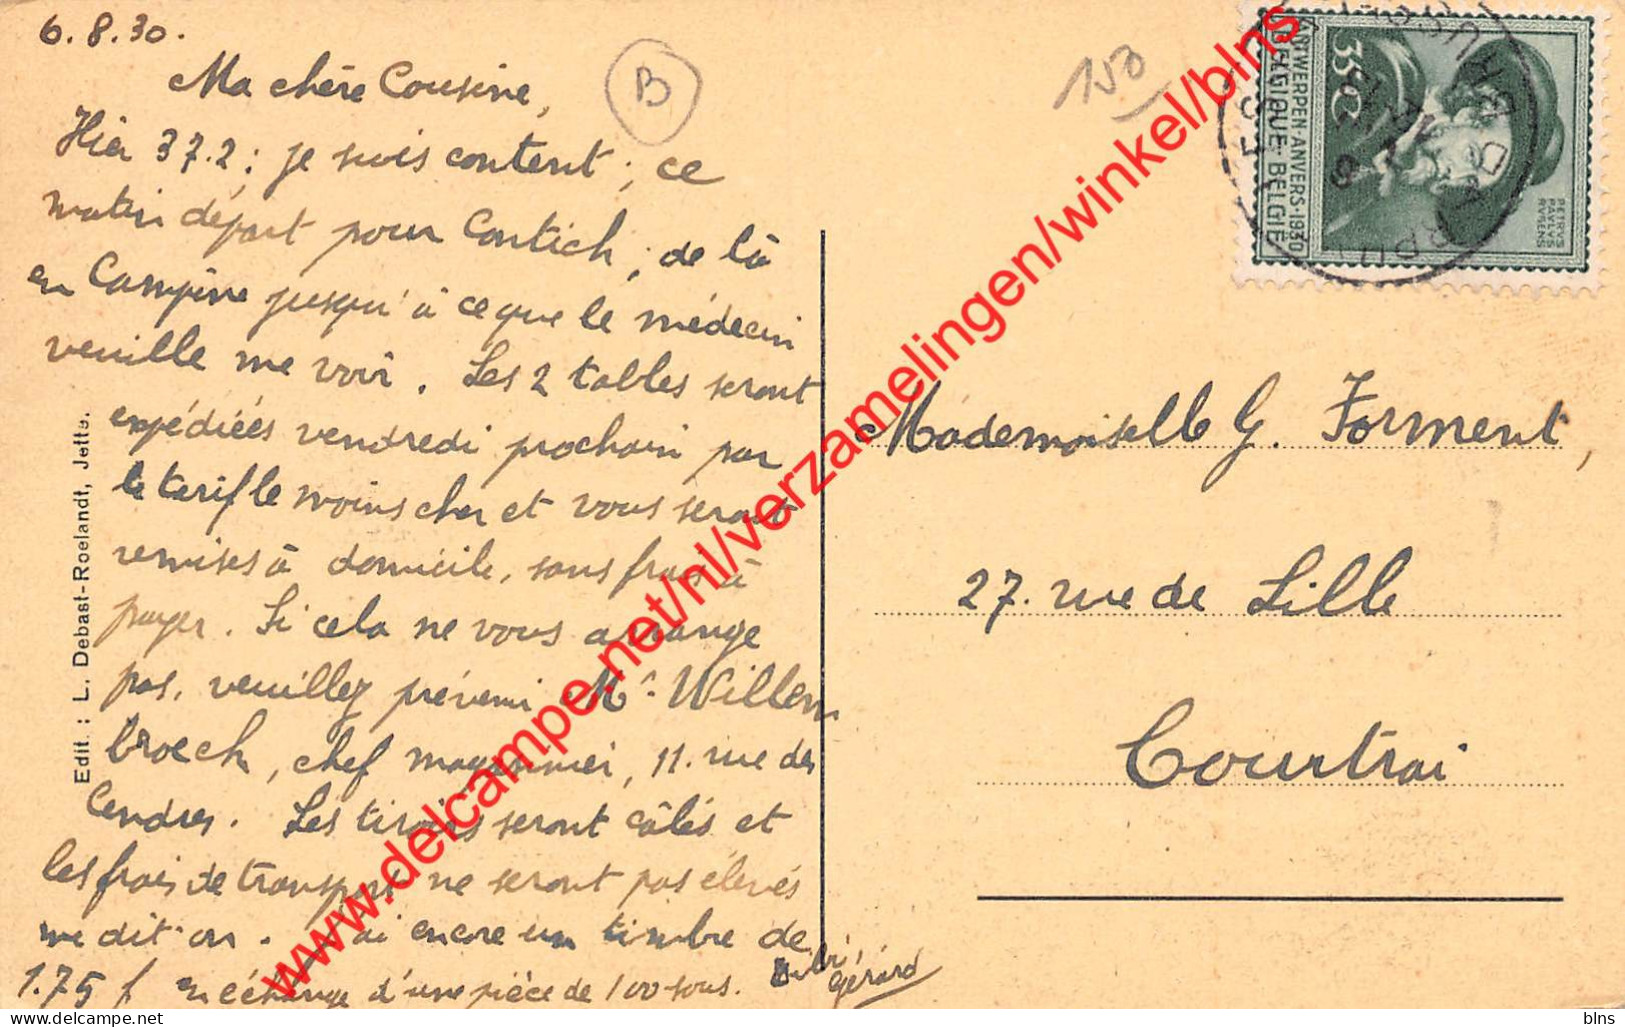 6.8.30.
Ma chère Cousine,
Hier 37.2; je suis content; ce
matin départ pour Contich; de là
en Campine jusqu'à ce que le médecin
veuille me voir. Les 2 tables seront
expédiées vendredi prochain par
le tarif le moins cher et vous seront
remises à domicile, sans frais à
payer. Si cela ne vous arrange
pas, veuillez prévenir Mr. Willem
broeck, chef magasinier, 11. rue des
Cendres. Les tiroirs seront calés et
les frais de transport ne seront pas élevés
me dit-on. J'ai encore un timbre de
1.75 f en échange d'une pièce de 100 sous.
Gérard
B
150
Edit. : L. Debast-Roelandt, Jette.
ANTWERPEN-ANVERS-1930
BELGIQUE-BELGIË
35c
PETRVS
PAVLVS
RVBENS
Mademoiselle G. Forment,
27. rue de Lille
Courtrai
www.delcampe.net/nl/verzamelingen/winkel/blns
www.delcampe.net
blns